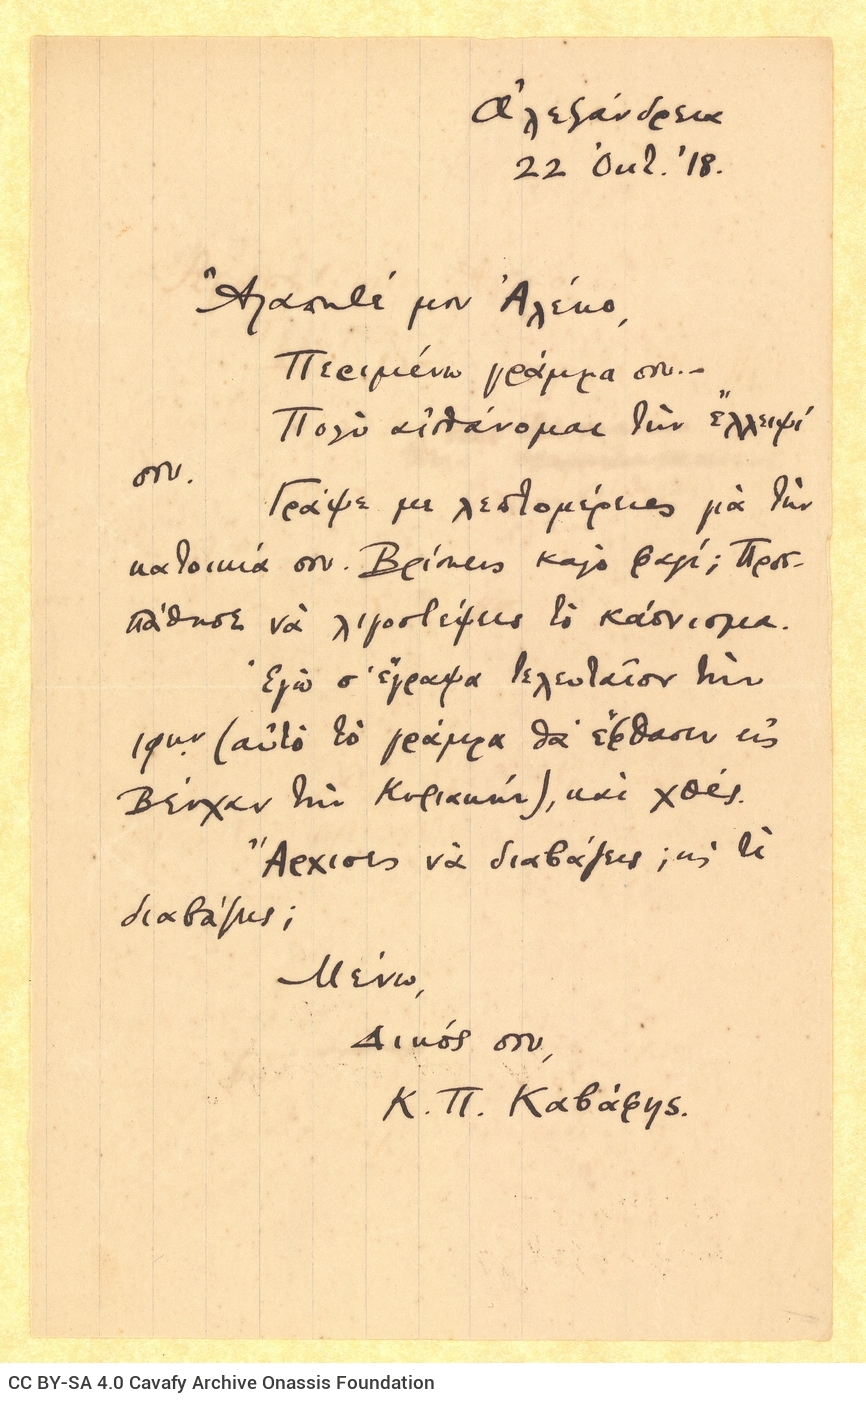 Ἀλεξάνδρεια
22 Ὀκτ. '18.
Ἀγαπητέ μου Ἀλέκο,
Περιμένω γράμμα σου.—
Πολὺ αἰσθάνομαι τὴν ἔλλειψί
σου.
Γράψε με λεπτομέρειες γιὰ τὴν
κατοικιά σου. Βρίσκεις καλὸ φαγί; Προσ-
πάθησε νὰ λιγοστέψεις τὸ κάπνισμα.
Ἐγὼ σ' ἔγραψα τελευταῖον τὴν
19ην (αὐτὸ τὸ γράμμα θὰ ἔφθασεν εἰς
Βένχαν τὴν Κυριακήν), καὶ χθές.
Ἄρχισες νὰ διαβάζεις; κὶ τὶ
διαβάζεις;
Μένω,
Δικός σου,
Κ. Π. Καβάφης.
CC BY-SA 4.0 Cavafy Archive Onassis Foundation